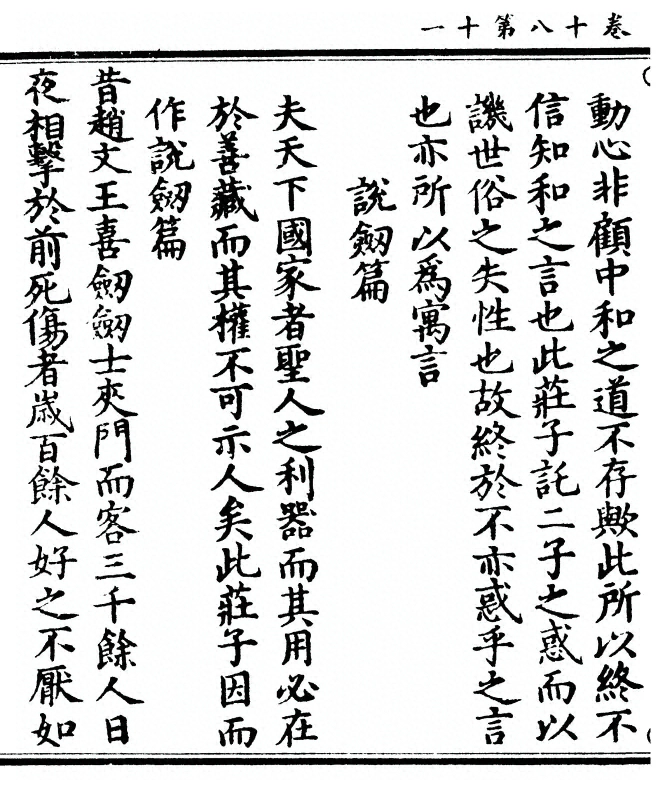 卷十八第十一
動心非顧中和之道不存歟此所以終不
信知和之言也此莊子託二子之惑而以
譏世俗之失性也故終於不亦惑乎之言
也亦所以爲寓言
說劒篇
夫天下國家者聖人之利器而其用必在
於善藏而其權不可示人矣此莊子因而
作說劒篇
昔趙文王喜劒劒士夾門而客三千餘人日
夜相擊於前死傷者歲百餘人好之不厭如